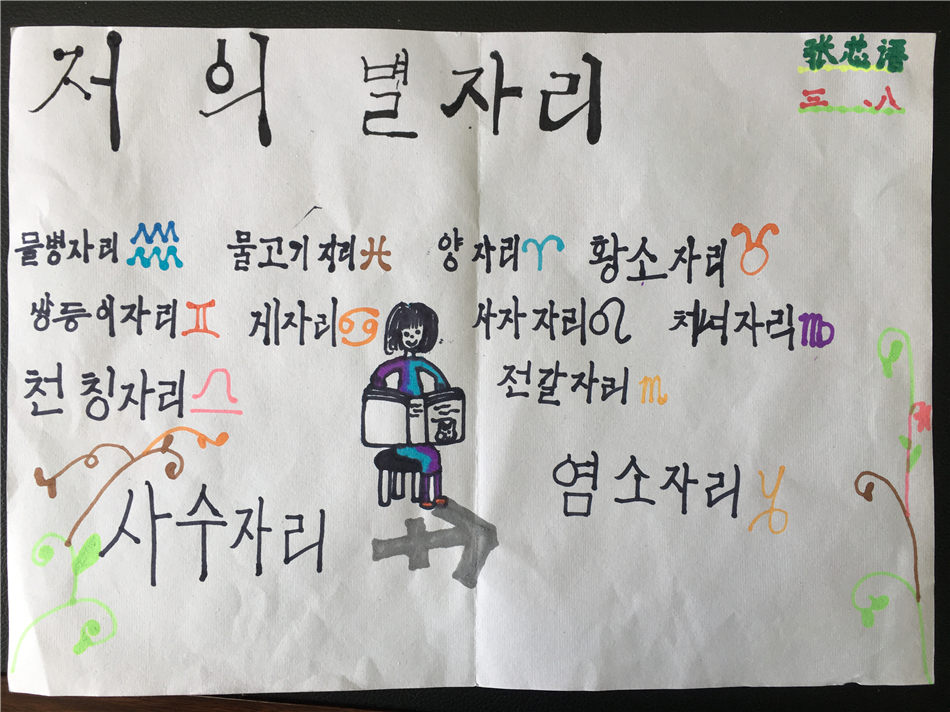 저의 별자리
张芯语
三、八
물병자리 물고기자리 양자리 황소자리
쌍둥이자리 게자리 사자자리 처녀자리
천칭자리 전갈자리
사수자리 염소자리